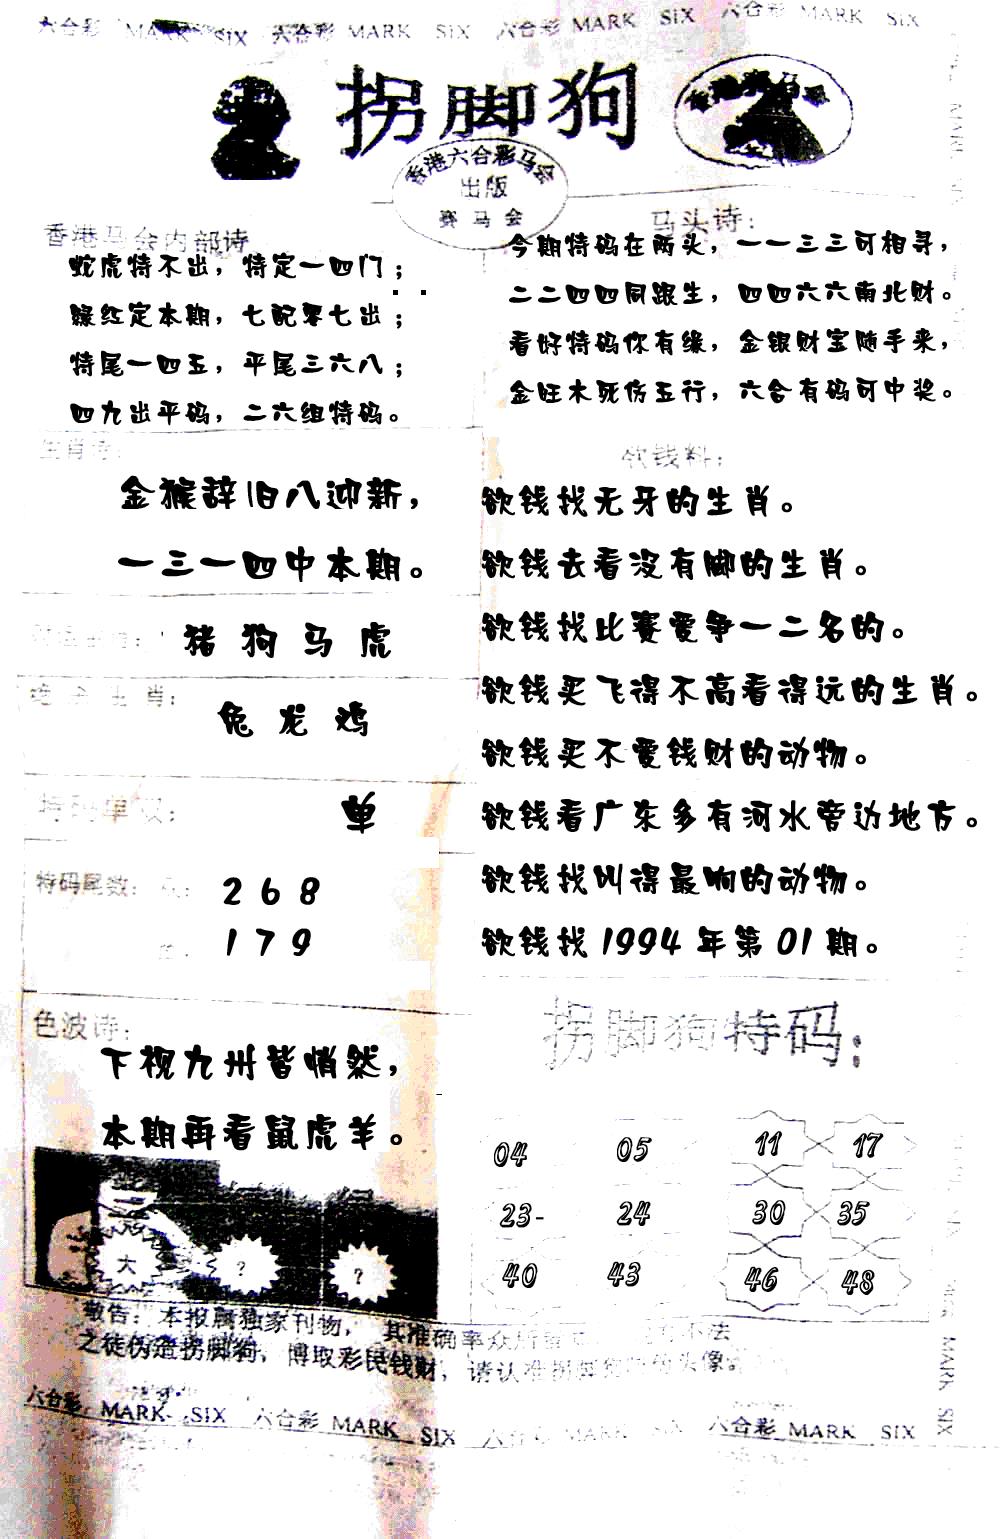 六合彩 MARK SIX 六合彩 MARK SIX 六合彩 MARK SIX 六合彩 MARK SIX
拐脚狗
香港六合彩马会
出版
赛马会
香港马会内部诗
蛇虎特不出，特定一四门；
绿红定本期，七配零七出；
特尾一四五，平尾三六八；
四九出平码，二六组特码。
马头诗：
今期特码在两头，一一三三可相寻，
二二四四同跟生，四四六六南北财。
看好特码你有缘，金银财宝随手来，
金旺木死伤五行，六合有码可中奖。
生肖诗：
金猴辞旧八迎新，
一三一四中本期。
猪 狗 马 虎
生肖：
兔 龙 鸡
特码单双：
单
特码尾数：
2 6 8
1 7 9
欲钱料：
欲钱找无牙的生肖。
欲钱去看没有脚的生肖。
欲钱找比赛爱争一二名的。
欲钱买飞得不高看得远的生肖。
欲钱买不爱钱财的动物。
欲钱看广东多有河水旁边地方。
欲钱找叫得最响的动物。
欲钱找1994年第01期。
色波诗：
下视九州皆悄然，
本期再看鼠虎羊。
大 ? ?
拐脚狗特码：
04 05 11 17
23- 24 30 35
40 43 46 48
敬告：本报属独家刊物，其准确率众所 不法
之徒伪造拐脚狗，博取彩民钱财，请认准拐脚狗 头像。
六合彩 MARK SIX 六合彩 MARK SIX 六合彩 MARK SIX 六合彩 MARK SIX
MARK SIX